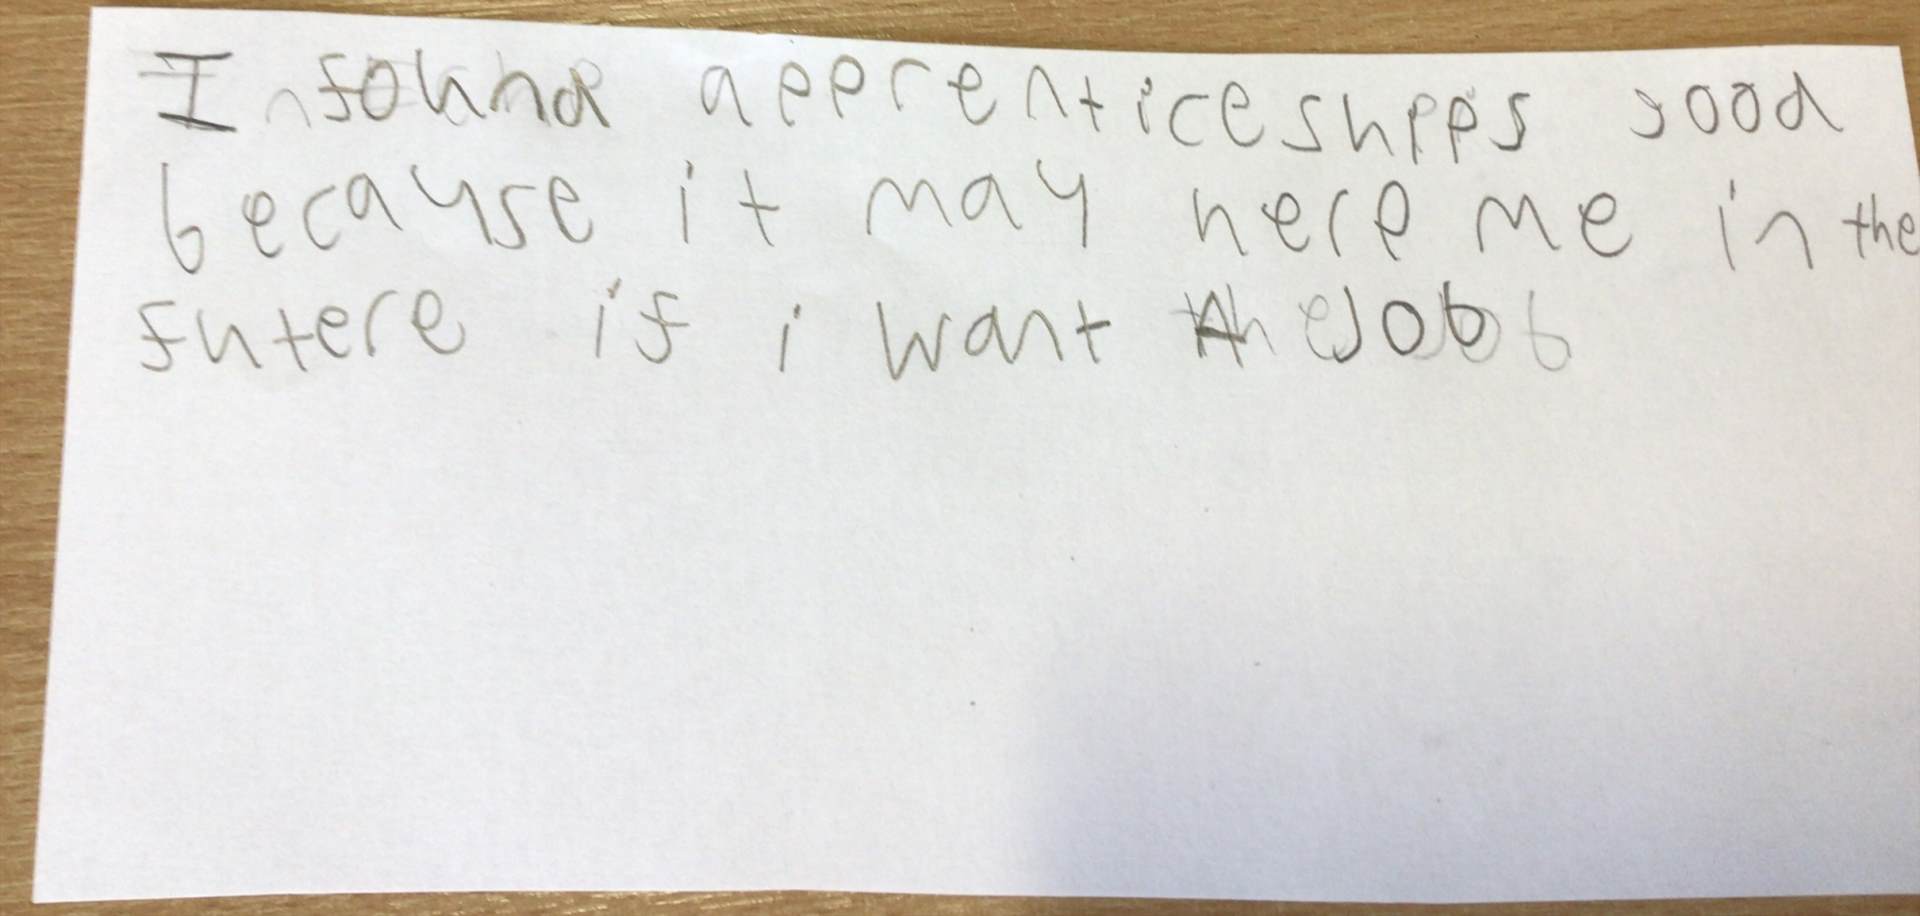 I found apprenticeshipps good
because it may herp me in the
futere if i want A Job